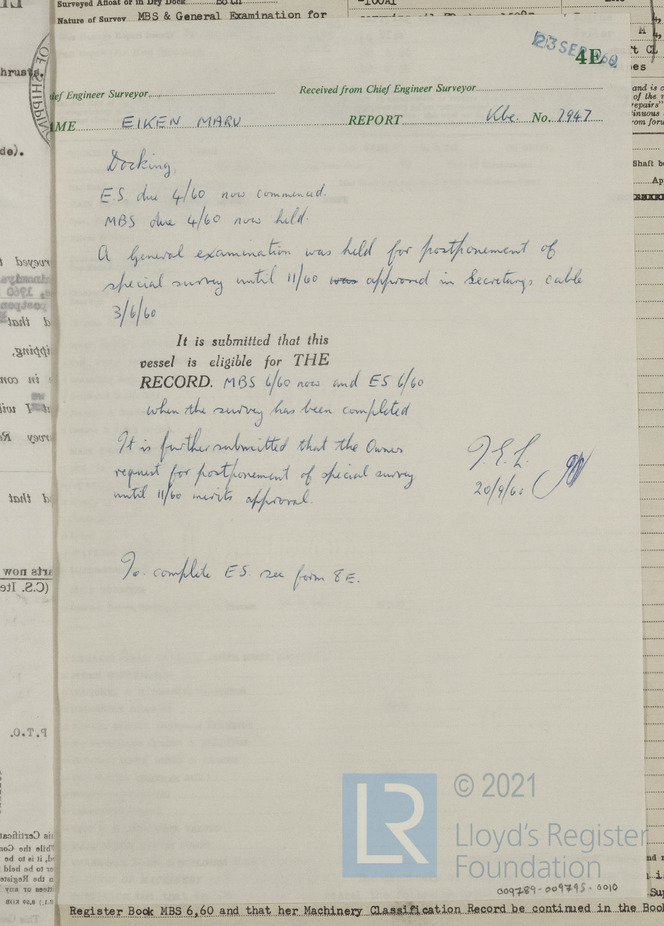 Surveyed Afloat or in Dry Dock Both
Nature of Survey MBS & General Examination for
23 SEP 1960
4E
ief Engineer Surveyor
Received from Chief Engineer Surveyor
AME EIKEN MARU REPORT Kbe. No. 7947
Docking,
E.S. due 4/60 now commenced.
MBS due 4/60 now held.
A General examination was held for postponement of
special survey until 11/60 was approved in Secretarys cable
3/6/60
It is submitted that this
vessel is eligible for THE
RECORD. MBS 6/60 now and ES 6/60
when the survey has been completed
It is further submitted that the Owners
request for postponement of special survey
until 11/60 merits approval.
20/9/60
To complete ES see form 8E.
P.T.O.
© 2021
LR
Lloyd's Register
Foundation
009789-009795-0010
Register Book MBS 6,60 and that her Machinery Classification Record be continued in the Book